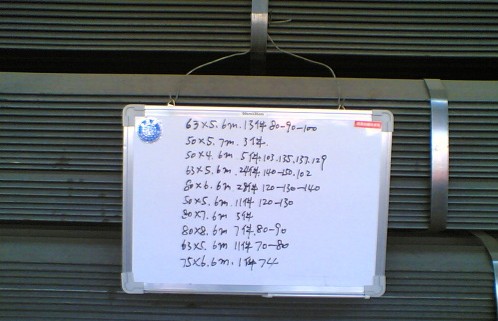 63×5.6m.13件80-90-100
50×5.7m.3件.
50×4.6m 5件.103.135.137.129
63×5.6m.24件.140-150.102
80×6.6m 28件120-130-140
50×5.6m.11件120-130
80×7.6m 3件
80×8.6m 7件.80-90
63×5.6m 11件70-80
75×6.6m.1件74